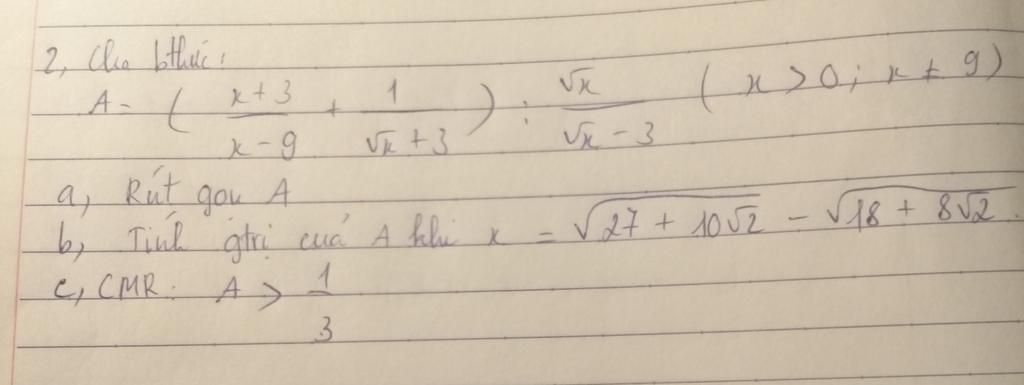 2, Cho bthức:
A = ( \frac{x+3}{x-9} + \frac{1}{\sqrt{x}+3} ) : \frac{\sqrt{x}}{\sqrt{x}-3} ( x > 0 ; x ≠ 9 )
a, Rút gọn A
b, Tính gtrị của A khi x = \sqrt{27 + 10\sqrt{2}} - \sqrt{18 + 8\sqrt{2}}
c, CMR: A > \frac{1}{3}